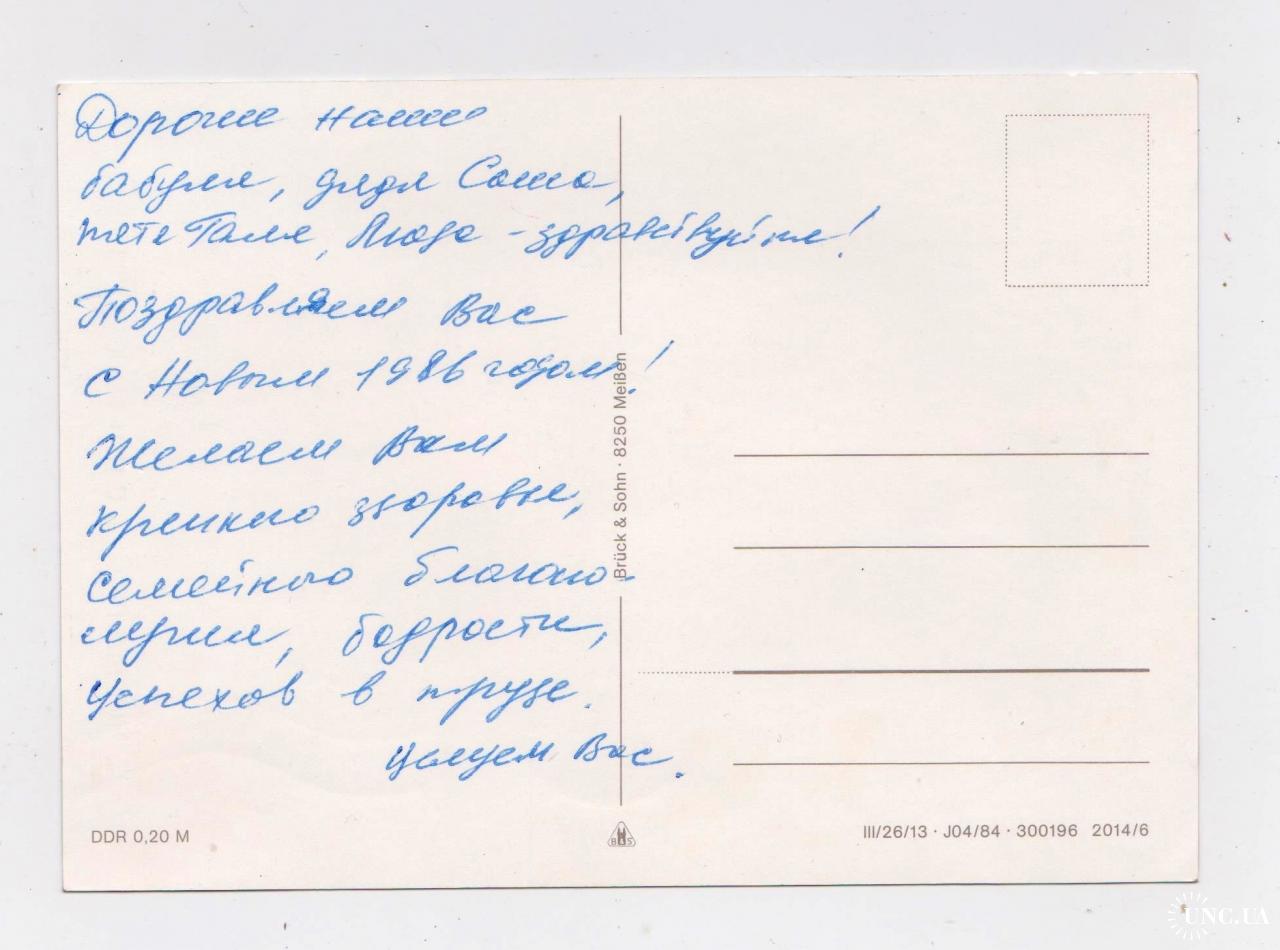 Дорогие наши
бабуля, дядя Саша,
тетя Галя, Люда - здравствуйте!
Поздравляем Вас
с Новым 1986 годом!
Желаем Вам
крепкого здоровья,
семейного благопо-
лучия, бодрости,
успехов в труде.
Целуем Вас.
Brück & Sohn · 8250 Meißen
DDR 0,20 M
B&S
III/26/13 · J04/84 · 300196 2014/6
UNC.UA